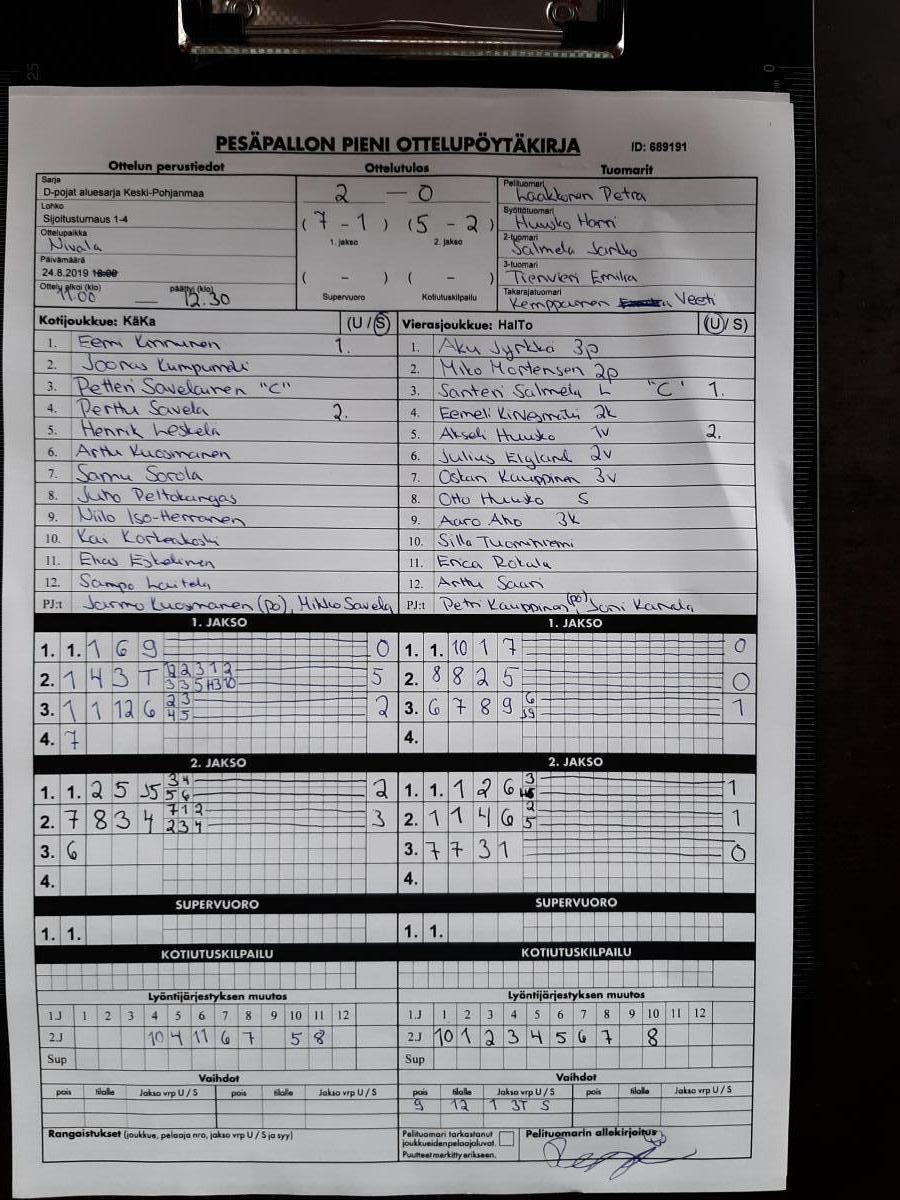 PESÄPALLON PIENI OTTELUPÖYTÄKIRJA ID: 689191
Ottelun perustiedot Ottelutulos Tuomarit
Sarja
D-pojat aluesarja Keski-Pohjanmaa
Lohko
Sijoitusturnaus 1-4
Ottelupaikka
Nivala
Päivämäärä
24.8.2019 18:00
Ottelu alkoi (klo) päättyi (klo)
11.00 — 12.30
2 — 0
(7 - 1) (5 - 2)
1. jakso 2. jakso
( - ) ( - )
Supervuoro Kotiutuskilpailu
Pelituomari
Laakkonen Petra
Syöttötuomari
Huusko Harri
2-tuomari
Salmela Jarkko
3-tuomari
Emilia
Takarajatuomari
Kemppainen Veeti
Kotijoukkue: KäKa (U / S)
1. Eemi Kinnunen 1.
2. Joonas Kumpumäki
3. Petteri Savelainen "C"
4. Perttu Savela 2.
5. Henrik Leskelä
6. Arttu Kuosmanen
7. Samu Sorola
8. Juho Peltokangas
9. Niilo Iso-Herranen
10. Kai Korkeakoski
11. Elias Eskelinen
12. Sampo Laitela
PJ:t Jarmo Kuosmanen (po), Mikko Savela
Vierasjoukkue: HalTo (U / S)
1. Aku Jyrkkä 3p
2. Miko Mortensen 2p
3. Santeri Salmela L "C" 1.
4. Eemeli Kinnesmäki 2k
5. Akseli Huusko 1v 2.
6. Julius Elgland 2v
7. Oskari Kauppinen 3v
8. Otto Huusko S
9. Aaro Aho 3k
10. Silla Tuominiemi
11. Erica Rokala
12. Arttu Saari
PJ:t Petri Kauppinen (po), Joni Kanala
1. JAKSO
1. 1. 1 6 9 0
2. 1 4 3 T 5
3. 1 1 12 6 2 3 4 5 2
4. 7
1. JAKSO
1. 1. 10 1 7 0
2. 8 8 2 5 0
3. 6 7 8 9 1
4.
2. JAKSO
1. 1. 2 5 J5 3 4 5 6 2
2. 7 8 3 4 7 1 2 2 3 4 3
3. 6
4.
2. JAKSO
1. 1. 1 2 6 3 1
2. 1 1 4 6 2 5 1
3. 7 7 3 1 0
4.
SUPERVUORO
1. 1.
SUPERVUORO
1. 1.
KOTIUTUSKILPAILU
KOTIUTUSKILPAILU
Lyöntijärjestyksen muutos
1.J 1 2 3 4 5 6 7 8 9 10 11 12
2.J 10 4 11 6 7 5 8
Sup
Lyöntijärjestyksen muutos
1.J 1 2 3 4 5 6 7 8 9 10 11 12
2.J 10 1 2 3 4 5 6 7 8
Sup
Vaihdot
pois tilalle Jakso vrp U / S pois tilalle Jakso vrp U / S
Vaihdot
pois tilalle Jakso vrp U / S pois tilalle Jakso vrp U / S
9 12 1 3T S
Rangaistukset (joukkue, pelaaja nro, jakso vrp U / S ja syy)
Pelituomari tarkastanut
joukkueiden pelaajaluvat.
Puutteet merkitty erikseen.
Pelituomarin allekirjoitus